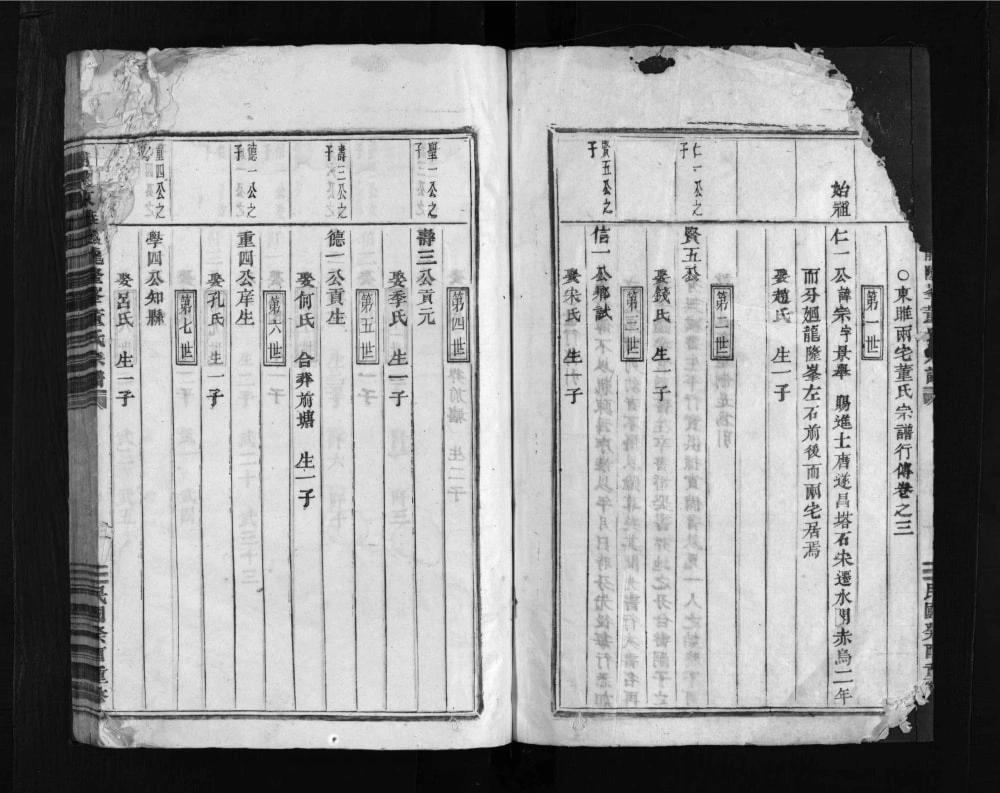 ○東雎兩宅董氏宗譜行傳卷之三
第一世
始祖
仁一公諱宗字景舉 賜進士唐遂昌塔石宋遷水閣赤烏二年
而分廻龍隆峯左石前後而兩宅居焉
娶趙氏 生一子
第二世
仁一公之子
賢五公
娶錢氏 生一子
第三世
賢五公之子
信一公鄉試
娶朱氏 生一子
第四世
壽三公貢元
娶季氏 生一子
第五世
壽三公之子
德一公貢生
娶何氏 合葬前塘 生一子
第六世
德一公之子
重四公庠生
娶孔氏 生一子
第七世
重四公之
學四公知縣
娶呂氏 生一子
董氏宗譜
民國癸酉重修